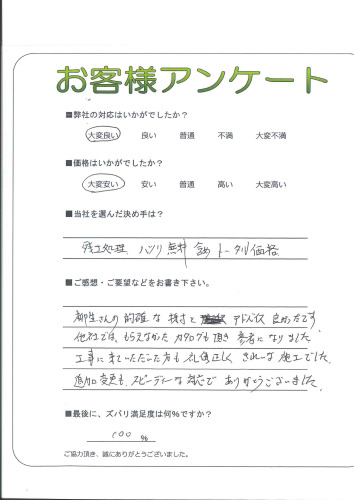 お客様アンケート
■弊社の対応はいかがでしたか?
大変良い 良い 普通 不満 大変不満
■価格はいかがでしたか?
大変安い 安い 普通 高い 大変高い
■当社を選んだ決め手は?
残土処理、ハツリ無料 含め トータル価格
■ご感想・ご要望などをお書き下さい。
柳生さんの的確な 採寸と アドバイス 良かったです
他社では、もらえなかった カタログも頂き 参考になりました
工事に来ていただいた方も 礼儀正しく きれいな施工でした
追加変更も、スピーディーな対応で ありがとうございました
■最後に、ズバリ満足度は何%ですか?
100 %
ご協力頂き、誠にありがとうございました。